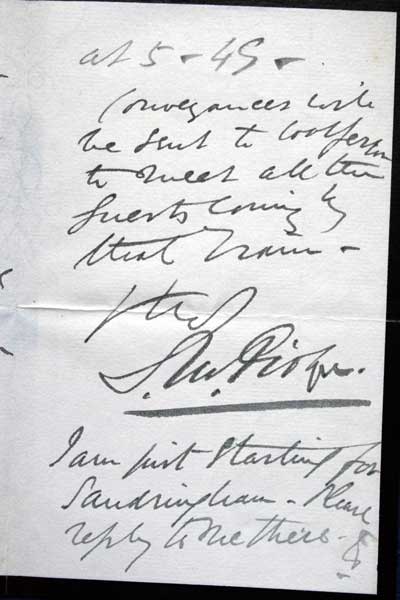 at 5-45-
Conveyances will
be sent to Wolferton
to meet all the
guests coming by
that train -
Yrs
D. M. Probyn.
I am just starting for
Sandringham - Please
reply to me there -